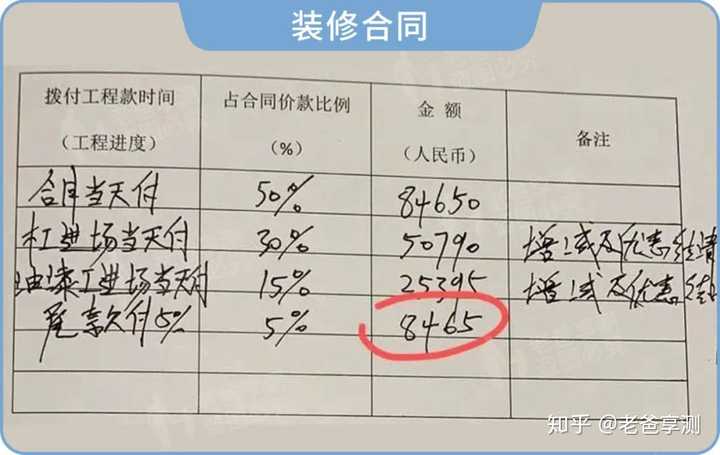 装修合同
拨付工程款时间
（工程进度）
占合同价款比例
（%）
金 额
（人民币）
备注
合同当天付 50% 84650
木工进场当天付 30% 50790 增减及优惠结清
油漆工进场当天付 15% 25395 增减及优惠结
尾款欠付5% 5% 8465
知乎 @老爸享测